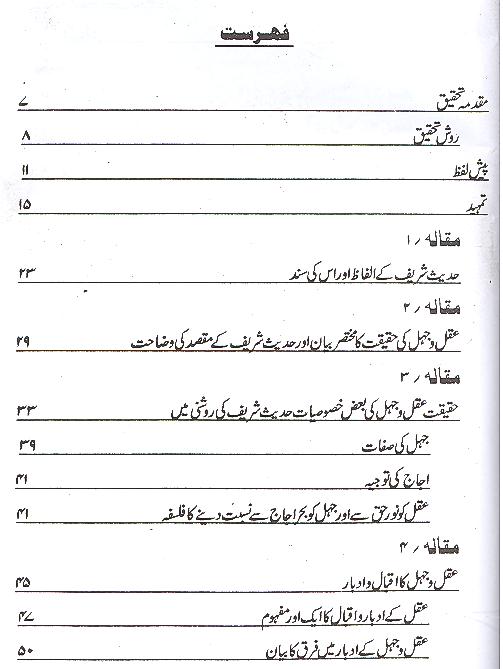 فہرست
مقدمہ تحقیق ۷
روش تحقیق ۸
پیش لفظ ۱۱
تمہید ۱۵
مقالہ ؍ ۱
حدیث شریف کے الفاظ اور اس کی سند ۲۳
مقالہ ؍ ۲
عقل و جہل کی حقیقت کا مختصر بیان اور حدیث شریف کے مقصد کی وضاحت ۲۹
مقالہ ؍ ۳
حقیقت عقل و جہل کی بعض خصوصیات حدیث شریف کی روشنی میں ۳۳
جہل کی صفات ۳۹
اجاج کی توجیہ ۴۱
عقل کو نور حق سے اور جہل کو بحر اجاج سے نسبت دینے کا فلسفہ ۴۱
مقالہ ؍ ۴
عقل و جہل کا اقبال و ادبار ۴۵
عقل کے ادبار و اقبال کا ایک اور مفہوم ۴۷
عقل و جہل کے ادبار میں فرق کا بیان ۵۰